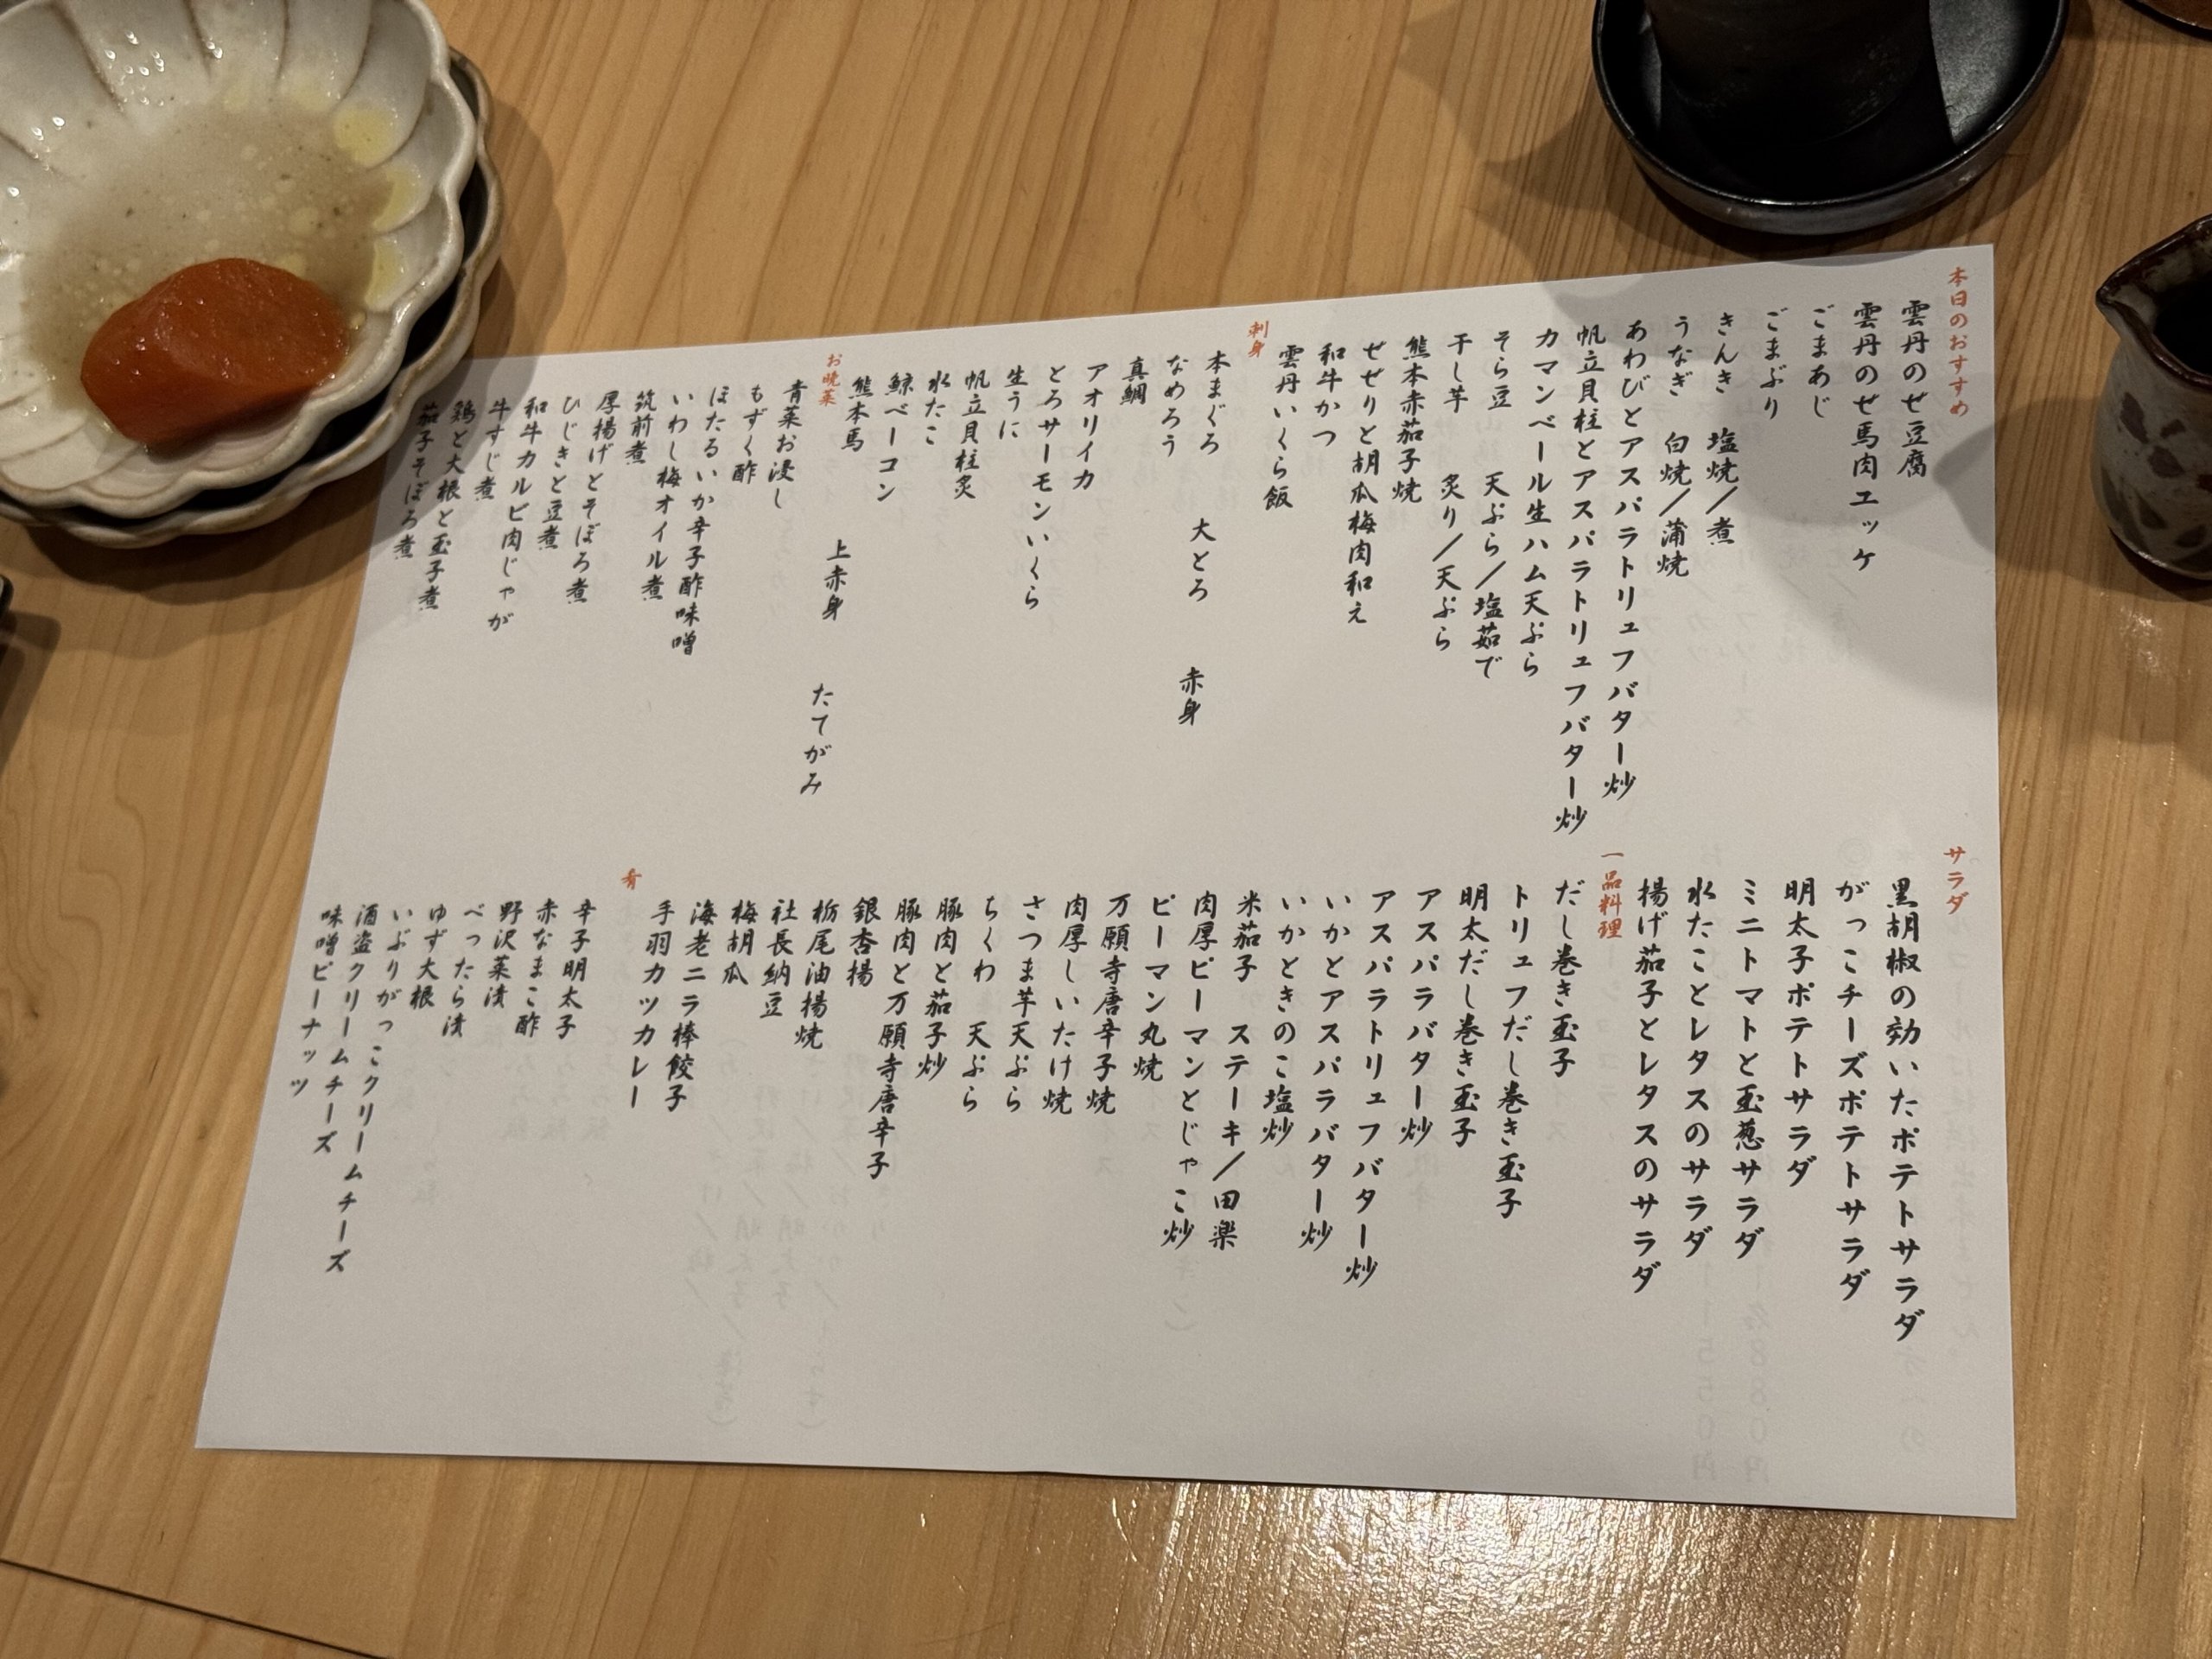 本日のおすすめ
雲丹のせ豆腐
雲丹のせ馬肉エッケ
ごまあじ
ごまぶり
きんき 塩焼/煮
うなぎ 白焼/蒲焼
あわびとアスパラトリュフバター炒
帆立貝柱とアスパラトリュフバター炒
カマンベール生ハム天ぷら
そら豆 天ぷら/塩茹で
干し芋 炙り/天ぷら
熊本赤茄子焼
せせりと胡瓜梅肉和え
和牛かつ
雲丹いくら飯
刺身
本まぐろ 大とろ 赤身
なめろう
真鯛
アオリイカ
とろサーモンいくら
生うに
帆立貝柱炙
水たこ
鯨ベーコン
熊本馬 上赤身 たてがみ
お晩菜
青菜お浸し
もずく酢
ほたるいか辛子酢味噌
いわし梅オイル煮
筑前煮
厚揚げとそぼろ煮
ひじきと豆煮
和牛カルビ肉じゃが
牛すじ煮
鶏と大根と玉子煮
茄子そぼろ煮
サラダ
黒胡椒の効いたポテトサラダ
がっこチーズポテトサラダ
明太子ポテトサラダ
ミニトマトと玉葱サラダ
水たことレタスのサラダ
揚げ茄子とレタスのサラダ
一品料理
だし巻き玉子
トリュフだし巻き玉子
明太だし巻き玉子
アスパラバター炒
アスパラトリュフバター炒
いかとアスパラバター炒
いかときのこ塩炒
米茄子 ステーキ/田楽
肉厚ピーマンとじゃこ炒
ピーマン丸焼
万願寺唐辛子焼
肉厚しいたけ焼
さつま芋天ぷら
ちくわ 天ぷら
豚肉と茄子炒
豚肉と万願寺唐辛子
銀杏揚
栃尾油揚焼
社長納豆
梅胡瓜
海老ニラ棒餃子
手羽カツカレー
肴
辛子明太子
赤なまこ酢
野沢菜漬
べったら漬
ゆず大根
いぶりがっこクリームチーズ
酒盗クリームチーズ
味噌ピーナッツ